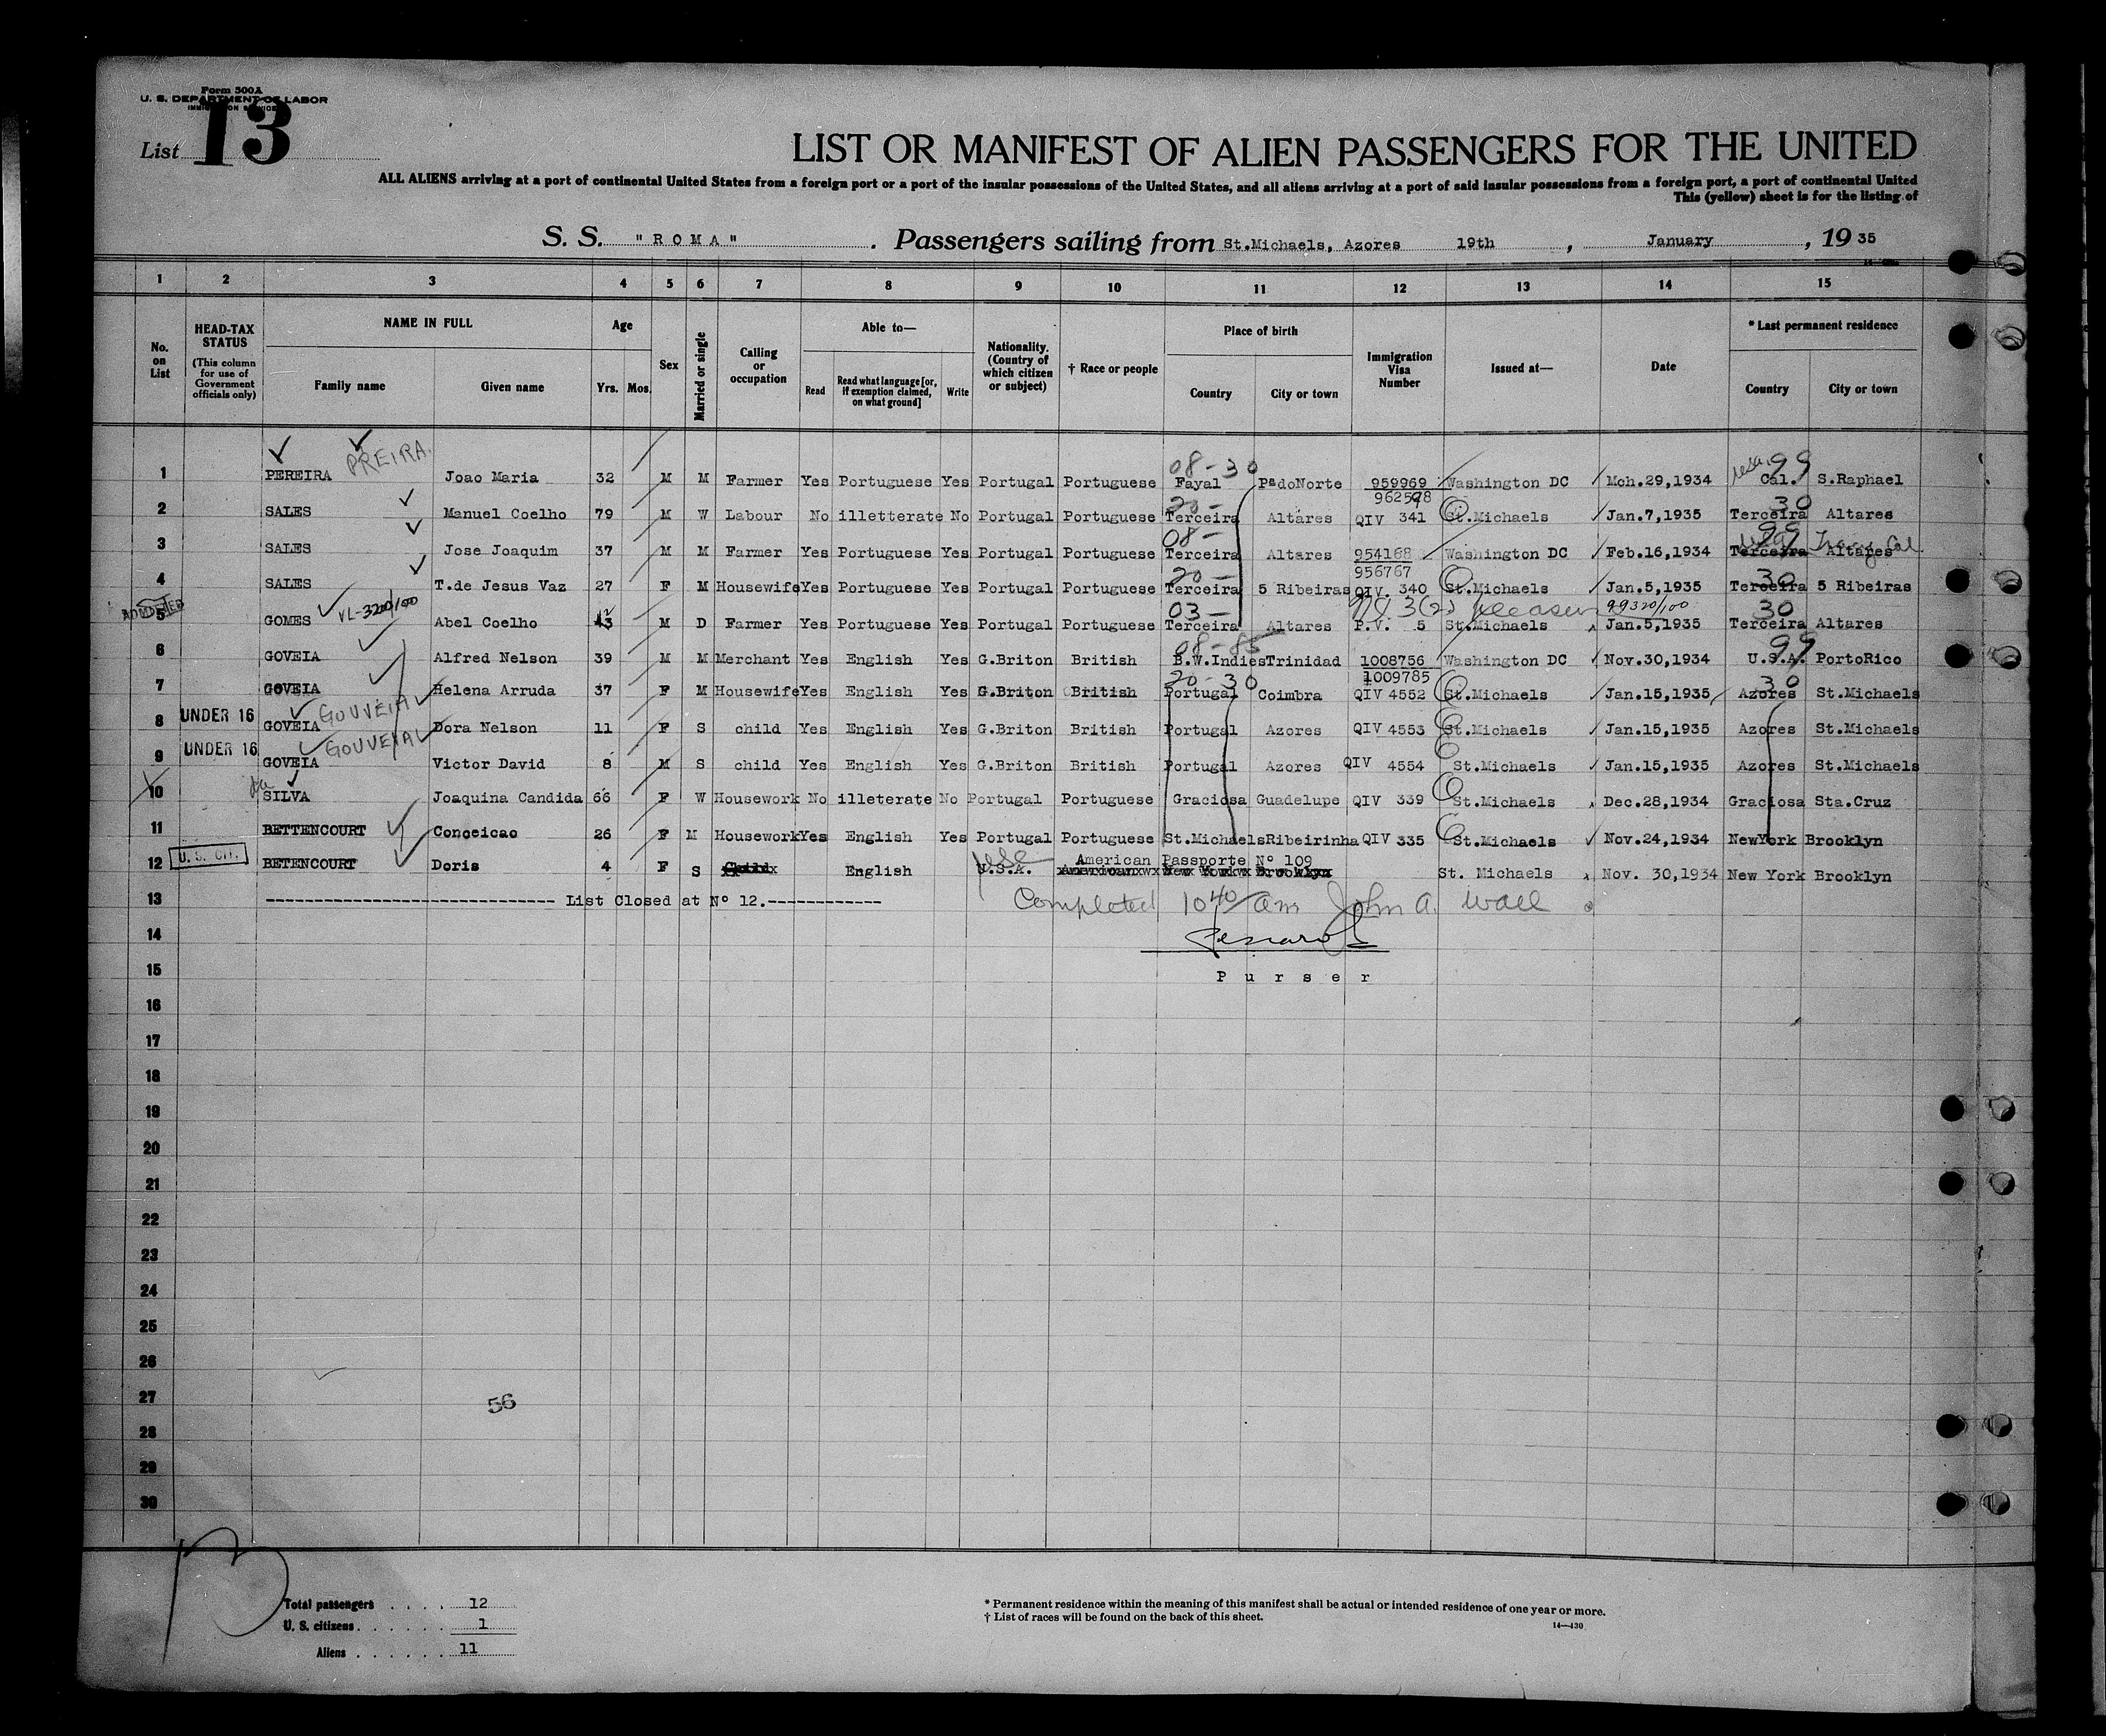 Form 500A
U. S. DEPARTMENT OF LABOR
List 13
LIST OR MANIFEST OF ALIEN PASSENGERS FOR THE UNITED
ALL ALIENS arriving at a port of continental United States from a foreign port or a port of the insular possessions of the United States, and all aliens arriving at a port of said insular possessions from a foreign port, a port of continental United
This (yellow) sheet is for the listing of
S. S. "ROMA" . Passengers sailing from St.Michaels, Azores 19th , January , 19 35
1 2 3 4 5 6 7 8 9 10 11 12 13 14 15
No. on List HEAD-TAX STATUS (This column for use of Government officials only) NAME IN FULL Family name Given name Age Yrs. Mos. Sex Married or single Calling or occupation Able to— Read Read what language [or, if exemption claimed, on what ground] Write Nationality. (Country of which citizen or subject) † Race or people Place of birth Country City or town Immigration Visa Number Issued at— Date * Last permanent residence Country City or town
PREIRA. 08-30 99
1 PEREIRA Joao Maria 32 M M Farmer Yes Portuguese Yes Portugal Portuguese Fayal PªdoNorte 959969 Washington DC Mch.29,1934 Cal. S.Raphael
962598
20- 30
2 SALES Manuel Coelho 79 M W Labour No illetterate No Portugal Portuguese Terceira Altares QIV 341 St.Michaels Jan.7,1935 Terceira Altares
08- 99 Tracy Cal
3 SALES Jose Joaquim 37 M M Farmer Yes Portuguese Yes Portugal Portuguese Terceira Altares 954168 Washington DC Feb.16,1934 Terceira Altares
956767
20- 30
4 SALES T.de Jesus Vaz 27 F M Housewife Yes Portuguese Yes Portugal Portuguese Terceira 5 Ribeiras QIV. 340 St.Michaels Jan.5,1935 Terceira 5 Ribeiras
ADMITTED VL-3200/100 03- 3(2) 99320/100 30
5 GOMES Abel Coelho 43 M D Farmer Yes Portuguese Yes Portugal Portuguese Terceira Altares P.V. 5 St.Michaels Jan.5,1935 Terceira Altares
08-85 99
6 GOVEIA Alfred Nelson 39 M M Merchant Yes English Yes G.Briton British B.W.Indies Trinidad 1008756 Washington DC Nov.30,1934 U.S.A. PortoRico
1009785
20-30 30
7 GOVEIA Helena Arruda 37 F M Housewife Yes English Yes G.Briton British Portugal Coimbra QIV 4552 St.Michaels Jan.15,1935 Azores St.Michaels
UNDER 16 GOUVEIA
8 GOVEIA Dora Nelson 11 F S child Yes English Yes G.Briton British Portugal Azores QIV 4553 St.Michaels Jan.15,1935 Azores St.Michaels
UNDER 16 GOUVEIA
9 GOVEIA Victor David 8 M S child Yes English Yes G.Briton British Portugal Azores QIV 4554 St.Michaels Jan.15,1935 Azores St.Michaels
da
10 SILVA Joaquina Candida 66 F W Housework No illeterate No Portugal Portuguese Graciosa Guadelupe QIV 339 St.Michaels Dec.28,1934 Graciosa Sta.Cruz
11 BETTENCOURT Conceicao 26 F M Housework Yes English Yes Portugal Portuguese St.Michaels Ribeirinha QIV 335 St.Michaels Nov.24,1934 NewYork Brooklyn
U. S. CIT. American Passporte Nº 109
12 BETENCOURT Doris 4 F S Child English U.S.A. St. Michaels Nov. 30,1934 New York Brooklyn
13 ----------------------------- List Closed at Nº 12.------------
Completed 10 40/am John A. Wall
14
15 Purser
16
17
18
19
20
21
22
23
24
25
26
27
56
28
29
30
13
Total passengers . . . . 12
U. S. citizens . . . . . . 1
Aliens . . . . . . 11
* Permanent residence within the meaning of this manifest shall be actual or intended residence of one year or more.
† List of races will be found on the back of this sheet.
14—430